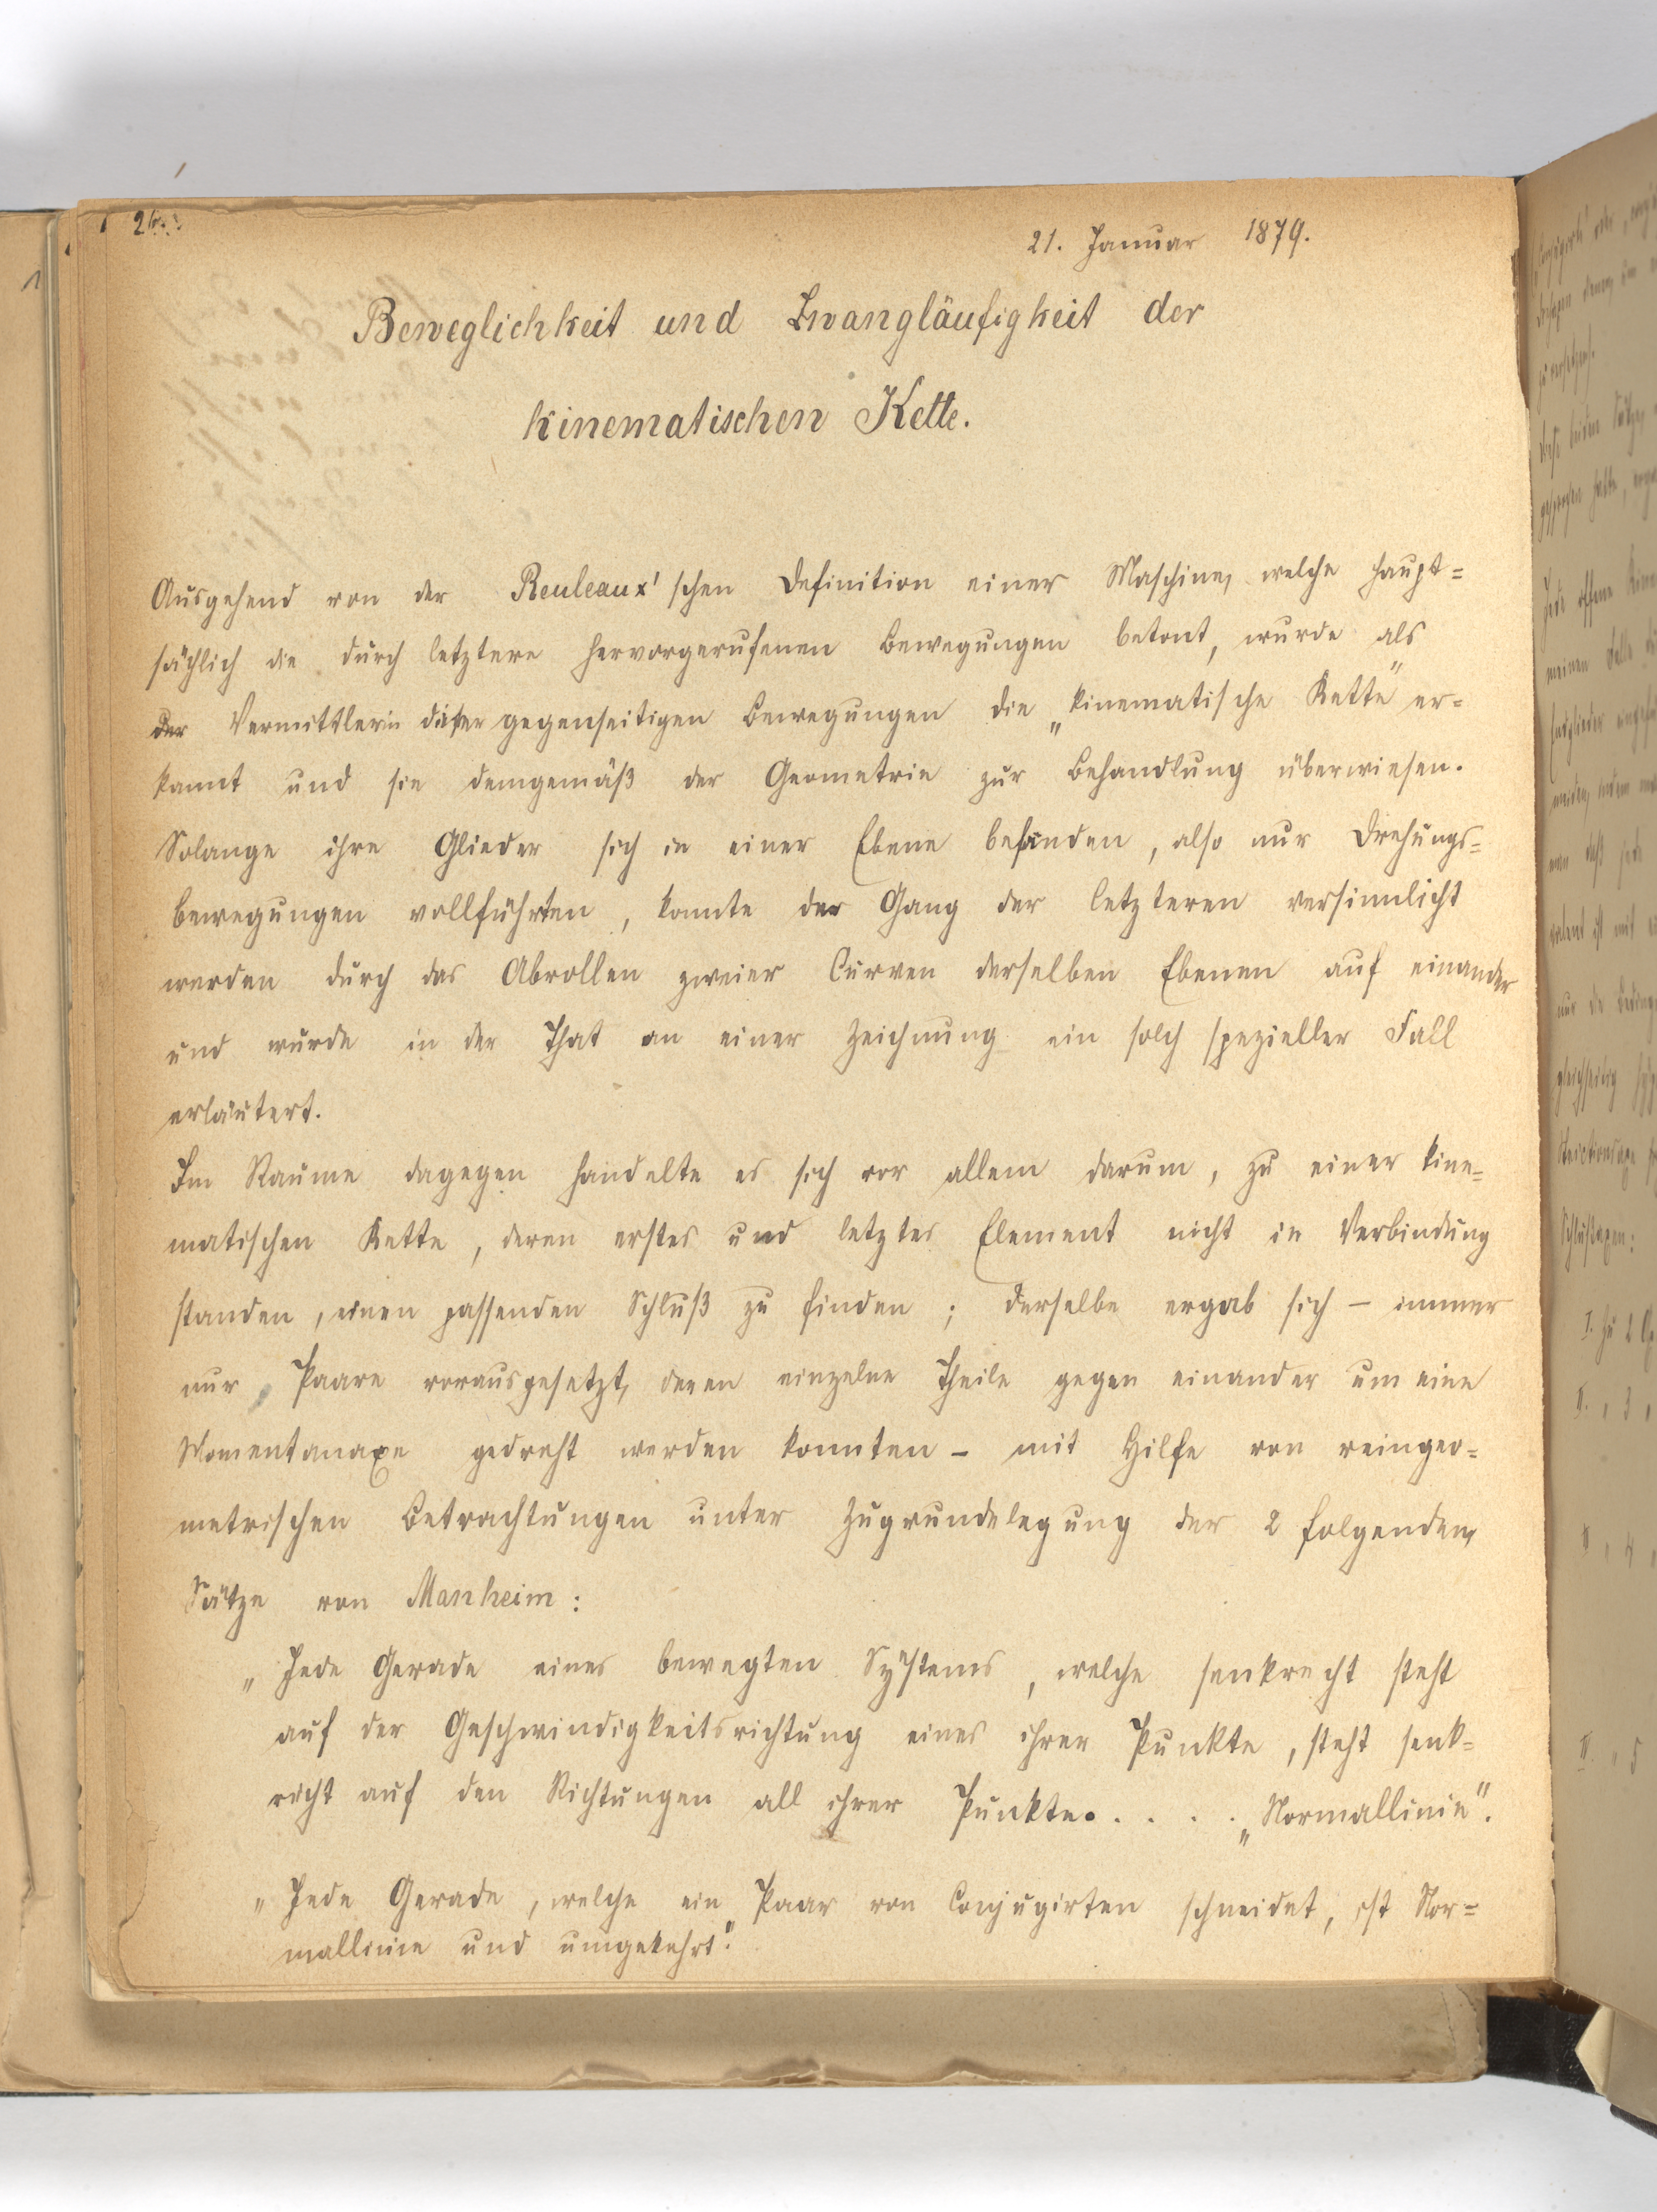 21. Januar 1879.
Beweglichkeit und Zwangläufigkeit der
kinematischen Kette.
Ausgehend von der Reuleaux'schen Definition einer Maschine, welche haupt=
sächlich die durch letztere hervorgerufenen Bewegungen betont, wurde als
der Vermittlerin dieser gegenseitigen Bewegungen die „kinematische Kette" er=
kannt und sie demgemäß der Geometrie zur Behandlung überwiesen.
Solange ihre Glieder sich in einer Ebene befanden, also nur Drehungs=
bewegungen vollführten, konnte der Gang der letzteren versinnlicht
werden durch das Abrollen zweier Curven derselben Ebenen auf einander
und wurde in der That an einer Zeichnung ein solch spezieller Fall
erläutert.
Im Raume dagegen handelte es sich vor allem darum, zu einer kine=
matischen Kette, deren erstes und letztes Element nicht in Verbindung
standen, einen passenden Schluß zu finden; derselbe ergab sich – immer
nur Paare vorausgesetzt, deren einzelne Theile gegen einander um eine
Momentanaxe gedreht werden konnten – mit Hilfe von reingeo=
metrischen Betrachtungen unter Zugrundelegung der 2 folgenden
Sätze von Manheim:
„Jede Gerade eines bewegten Systems, welche senkrecht steht
auf der Geschwindigkeitsrichtung eines ihrer Punkte, steht senk=
recht auf den Richtungen all ihrer Punkte. . . . . „Normallinie".
„Jede Gerade, welche ein Paar von Conjugirten schneidet, ist Nor=
mallinie und umgekehrt."